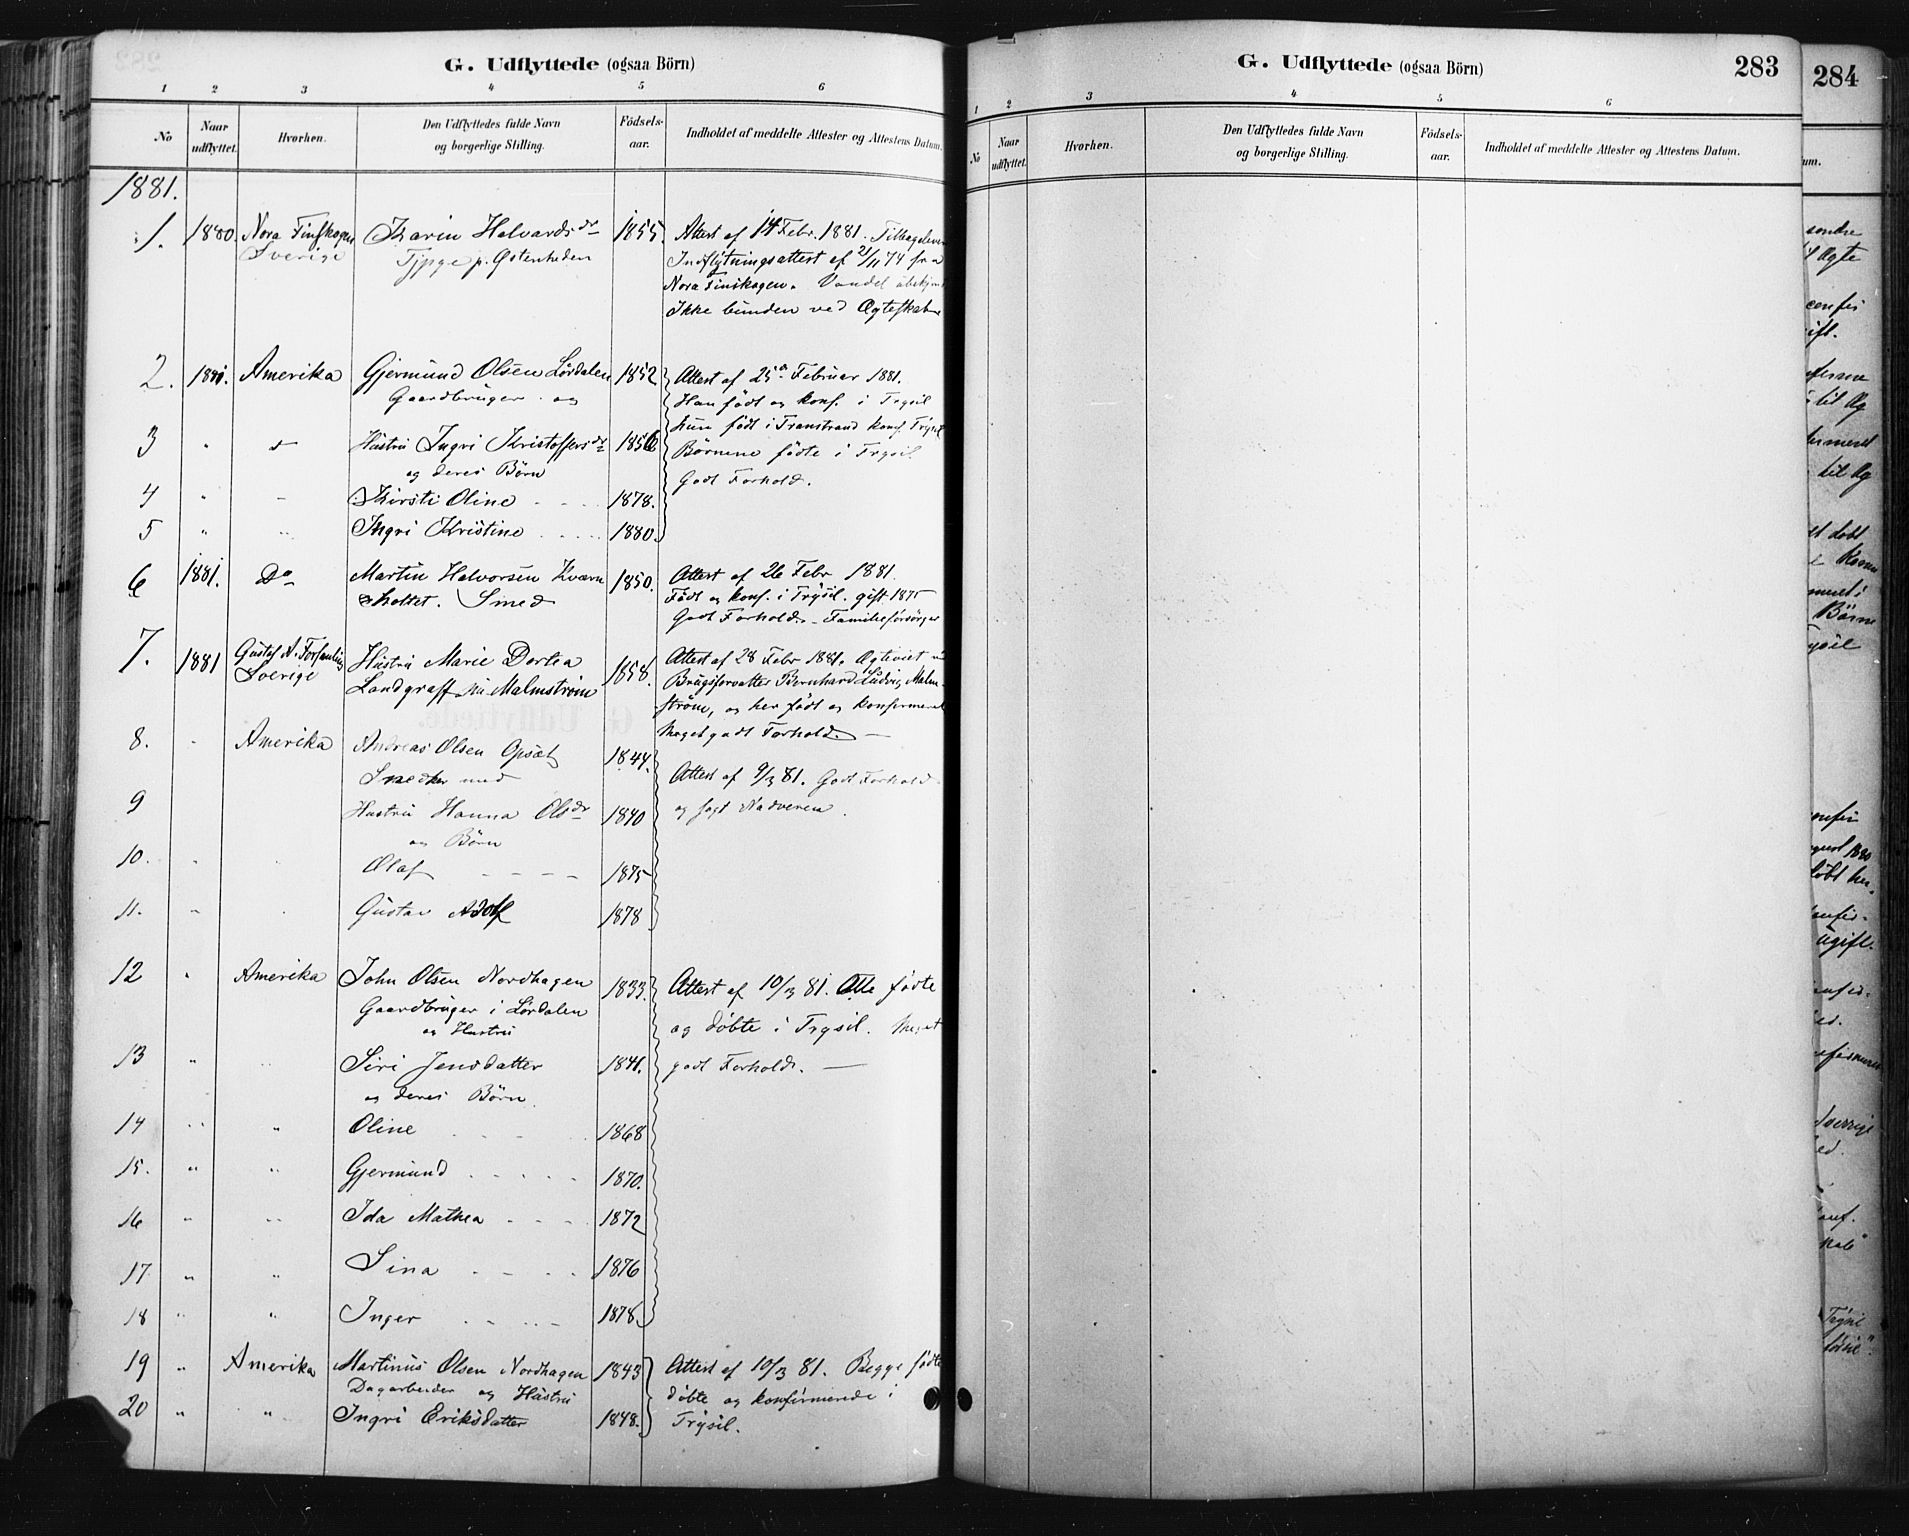 G. Udflyttede (ogsaa Börn)
1 2 3 4 5 6
No Naar udflyttet. Hvorhen. Den Udflyttedes fulde Navn og borgerlige Stilling. Födsels-aar. Indholdet af meddelte Attester og Attestens Datum.
1881.
1. 1880. Nora Finskogen Karin Halvardsdr 1855. Attest af 14 Febr. 1881. Tilbagelever
Sverige p. Østenheden Indflytningsattest af 21/11 74 fra
Nora Finskogen. Vandel ubekjen
Ikke bunden ved Ægteskab
2. 1881. Amerika Gjermund Olsen Lørdalen 1852 Attest af 25de Februar 1881.
Gaardbruger og Han født og konf. i Trysil
3 " d Hustru Ingri Kristoffersdr 1856 hun født i Transtrand konf. Trysil
og deres Børn Børnene fødte i Trysil.
4 " - Kirsti Oline 1878. Godt Forhold.
5 " " Ingri Kristine 1880.
6 1881. Do Martin Halvorsen Kværn 1850. Attest af 26 Febr 1881.
holtet. Smed Født og konf. i Trysil. gift 1875
Godt Forhold. - Familieforsørger
7. 1881 Gustaf A. Forsamling Hustru Marie Dortea 1858. Attest af 28 Febr 1881. Ægteviet
Sverige Landgraff nu Malmstrøm Brugsforvalter Bernhard Ludvig Malm-
strøm, og her født og konfirmeret
Meget godt Forhold. —
8. - Amerika Andreas Olsen Opsæt 1844. Attest af 9/3 81. Godt Forhold
Snedker med og søgt Nadveren.
9 Hustru Hanna Olsdr 1840
og Børn
10. " Olaf 1875
11. " Gustav Adolf 1878
12 " Amerika John Olsen Nordhagen 1833. Attest af 10/3 81. Alle fødte
Gaardbruger i Lørdalen og døbte i Trysil. Meget
og Hustru
13 " " Siri Jensdatter 1841. godt Forhold. —
og deres Børn.
14 " " Oline 1868
15. " " Gjermund 1870.
16 " " Ida Mathea 1872
17 " " Sina 1876
18 " " Inger 1878.
19 " Amerika Martinus Olsen Nordhagen 1843 Attest af 10/3 81. Begge fødte
Dagarbeider og Hustru døbte og konfirmerede i
20 " " Ingri Eriksdatter 1848. Trysil.
G. Udflyttede (ogsaa Börn) 283
1 2 3 4 5 6
No Naar udflyttet. Hvorhen. Den Udflyttedes fulde Navn og borgerlige Stilling. Födsels-aar. Indholdet af meddelte Attester og Attestens Datum.
284